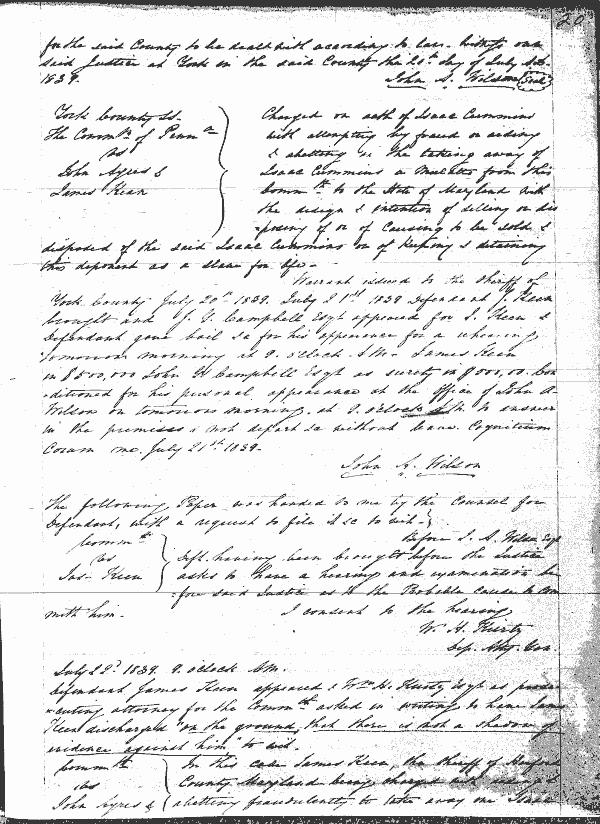 20
for the said County to be dealt with according to law. Witness our
said Justice at York in the said County the 20th day of July A.D.
1839. John A. Wilson Seal
York County SS.
The Commth of Penna
vs
John Ayres &
James Keen
Charged on oath of Isaac Cummins
with attempting by fraud or aiding
& abetting in the taking away of
Isaac Cummins a Mulatto from this
Commth to the State of Maryland with
the design & intention of selling or dis
=posing of or of Causing to be sold &
disposed of the said Isaac Cummins or of Keeping & detaining
this deponent as a slave for life.
Warrant issued to the Sheriff of
York County July 20th 1839. July 21st 1839 Defendant J. Keen
brought and J. G. Campbell Esqr appeared for J. Keen &
Defendant gave bail for his appearance for a hearing
tomorrow morning at 9. oclock A.M. James Keen
in $ John H Campbell Esqr as surety in Con
=ditioned for his personal appearance at the Office of John A.
Wilson on tomorrow morning, at 9. oclock to answer
in the premises & not depart without leave. Cognitum
Coram me. July 21st 1839.
John A. Wilson
The following Paper was handed to me by the Counsel for
Defendant, with a request to file it to wit.
Commth
vs
Jas. Keen
Before J. A. Wilson Esqr
Deft. having been brought before the Justice
asks to have a hearing and examination be
=fore said Justice as to the Probable cause to Com
mith him. I consent to the hearing
W. H. Kurtz
Dep. Atty. Gen.
July 22d 1839. 9. oclock A.M.
Defendant James Keen appeared & Wm H. Kurtz Esqr as prose=
=cuting attorney for the Commth asked in writing to have James
Keen discharged "on the ground, that there is not a shadow of
evidence against him" to wit.
Commth
vs
John Ayres &
In this case James Keen, the Sheriff of Harford
County Maryland being charged with aiding &
abetting fraudulently to take away one Isaac